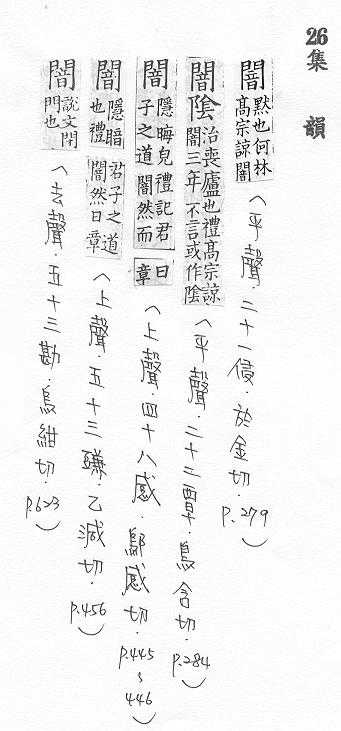 26集韻
闇默也何林髙宗諒闇(平聲．二十一侵．於金切．P.279)
闇陰治喪廬也禮髙宗諒闇三年不言或作陰(平聲．二十二覃．烏含切．P.284)
闇隱晦皃禮記君子之道闇然而日章(上聲．四十八感．鄔感切．P.445~446)
闇隱暗也禮君子之道闇然日章(上聲．五十三豏．乙減切．P.456)
闇說文閉門也(去聲．五十三勘．烏紺切．P.623)